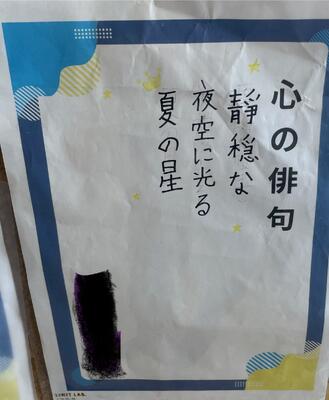 心の俳句
静穏な
夜空に光る
夏の星